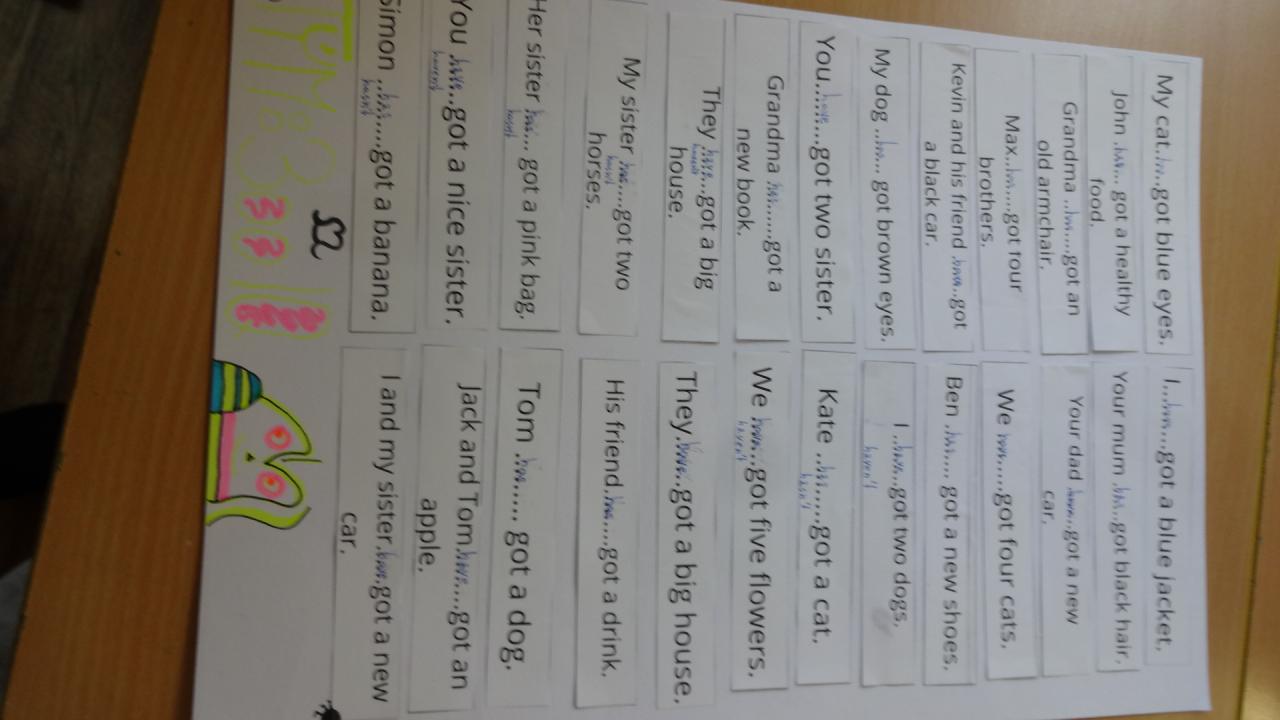 My cat.has..got blue eyes.
John .has... got a healthy
food.
Grandma ..has....got an
old armchair.
Max...has.....got four
brothers.
Kevin and his friend .have..got
a black car.
My dog ..has.... got brown eyes.
You...have.....got two sister.
Grandma has.......got a
new book.
They .have....got a big
haven't
house.
My sister has.....got two
hasn't
horses.
Her sister has.... got a pink bag.
hasn't
You have..got a nice sister.
haven't
Simon ..has.....got a banana.
hasn't
I...have....got a blue jacket.
Your mum .has..got black hair.
Your dad ..got a new
car.
We have.....got four cats.
Ben .has..... got a new shoes.
I ..have..got two dogs.
haven't
Kate ..has.....got a cat.
hasn't
We have...got five flowers.
haven't
They.have..got a big house.
His friend.has....got a drink.
Tom .has...... got a dog.
Jack and Tom.have....got an
apple.
I and my sister.have.got a new
car.